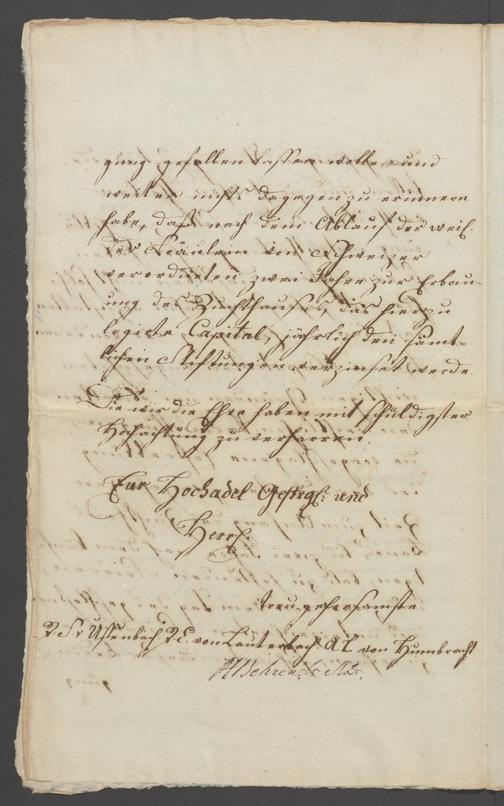 gung gefallen lassen wolle, und
weiter nichts dagegen zu erinnern
habe, daß nach dem Ablauf der weil.
der Fräulein von Schweizer
verordneten zwei Jahre zur Erbau-
ung des Zuchthauses, das hierzu
legirte Capital, jährlich den sämt-
lichen Stiftungen verzinset werde.
Die wir die Ehre haben mit schuldigster
Hochachtung zu verharren.
Eur Hochadel Gestrgl: und
Herrl.
treugehorsamste
von Lauterbach A. C. von Humbracht